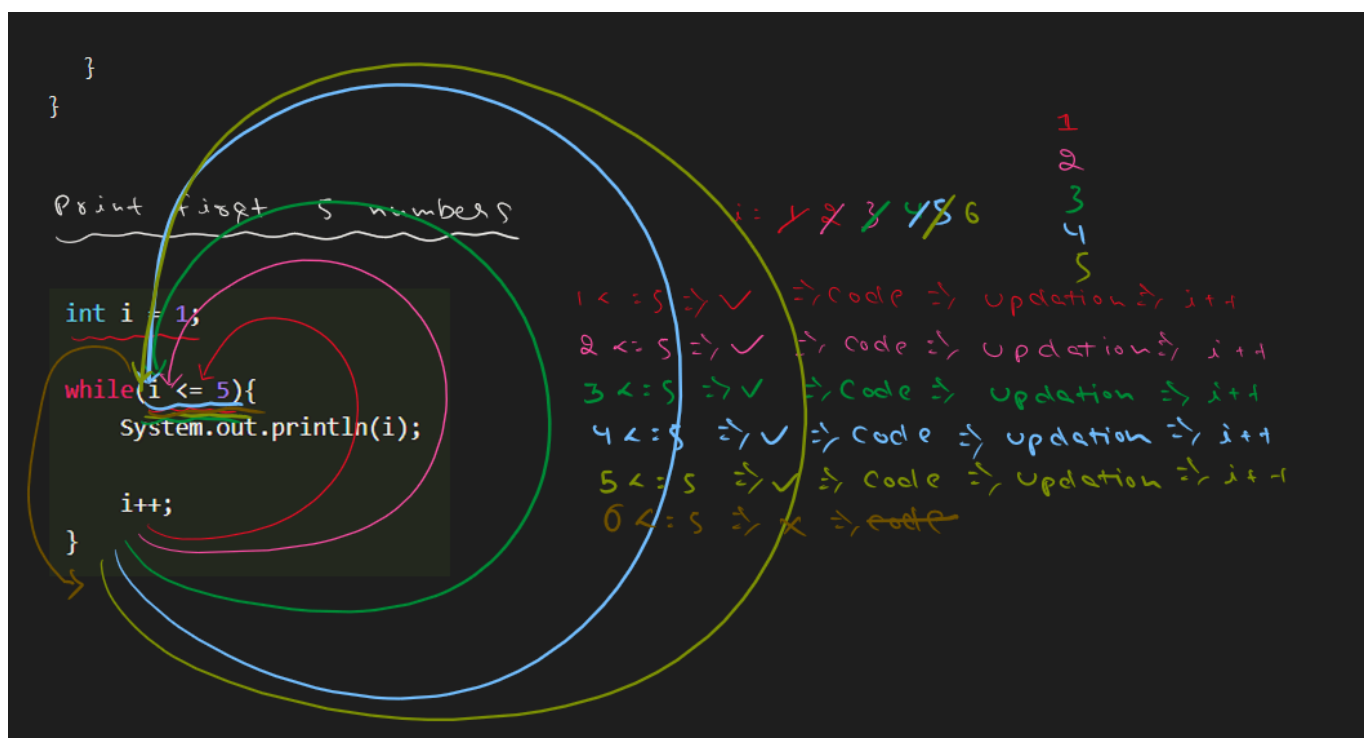 }
}
Print first 5 numbers
int i = 1;
while(i <= 5){
System.out.println(i);
i++;
}
i = 1 2 3 4 5 6
1
2
3
4
5
1 <= 5 => ✓ => Code => Updation => i++
2 <= 5 => ✓ => Code => Updation => i++
3 <= 5 => ✓ => Code => Updation => i++
4 <= 5 => ✓ => Code => Updation => i++
5 <= 5 => ✓ => Code => Updation => i++
6 <= 5 => × => code